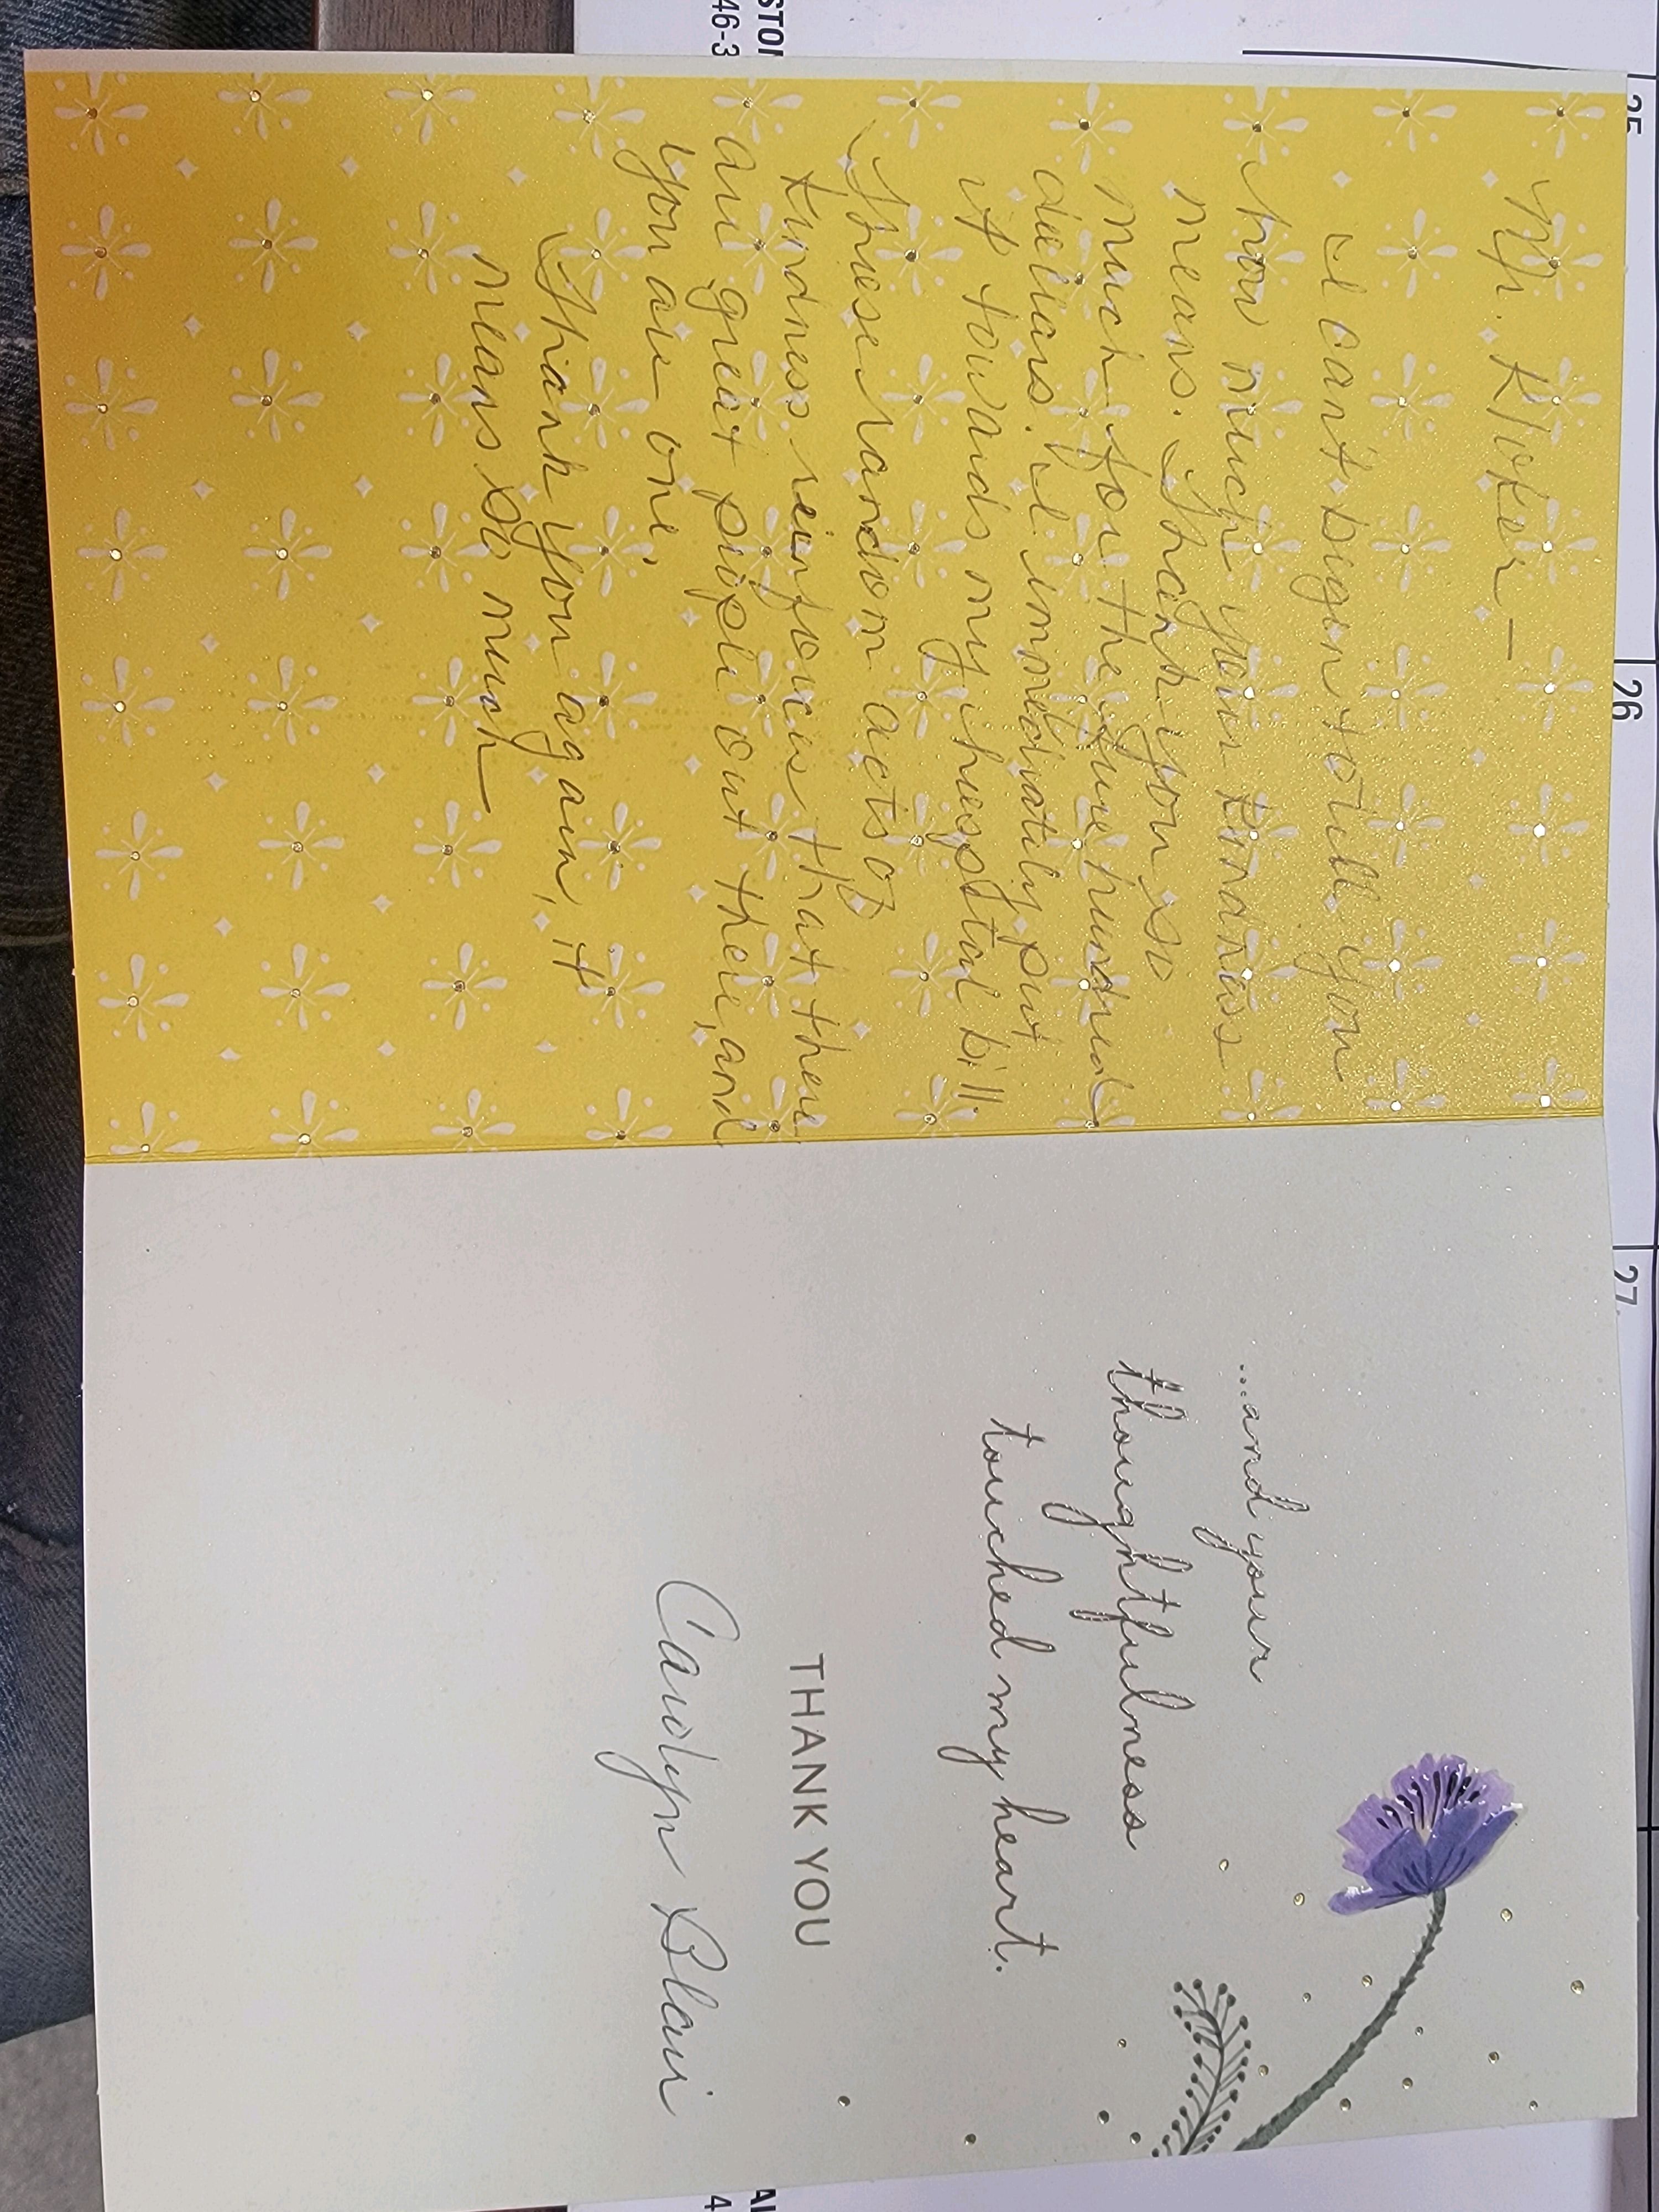 Mr. Kloker —
I can't begin to tell you
how much your kindness
means. Thank you so
much for the five hundred
dollars. I immediately put
it towards my hospital bill.
These random acts of
kindness reinforces that there
are great people out there, and
you are one.
Thank you again, it
means so much
...and your
thoughtfulness
touched my heart.
THANK YOU
Carolyn Blair
25
26
27
STO
46-3
4